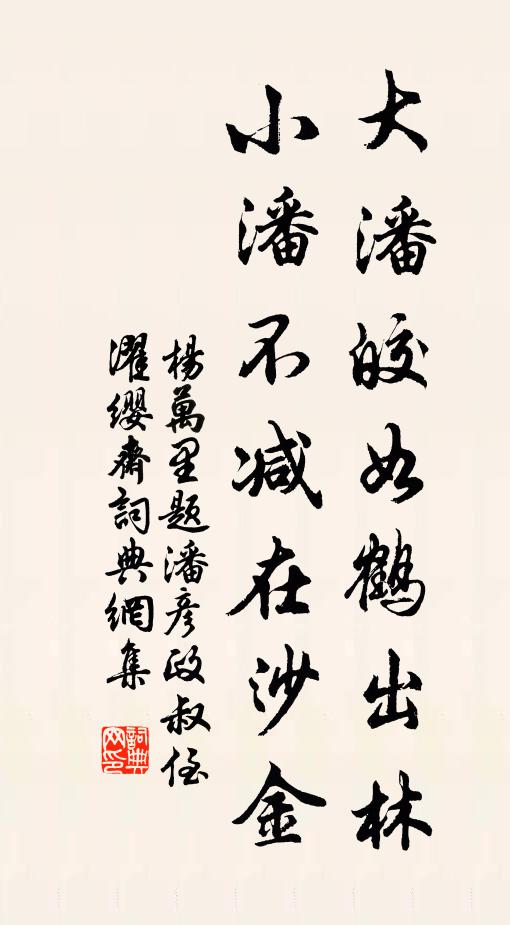 大潘皎如鶴出林
小潘不减在沙金
楊萬里題潘彦政叔侄
濯缨齋詞典網集
詞典
网印